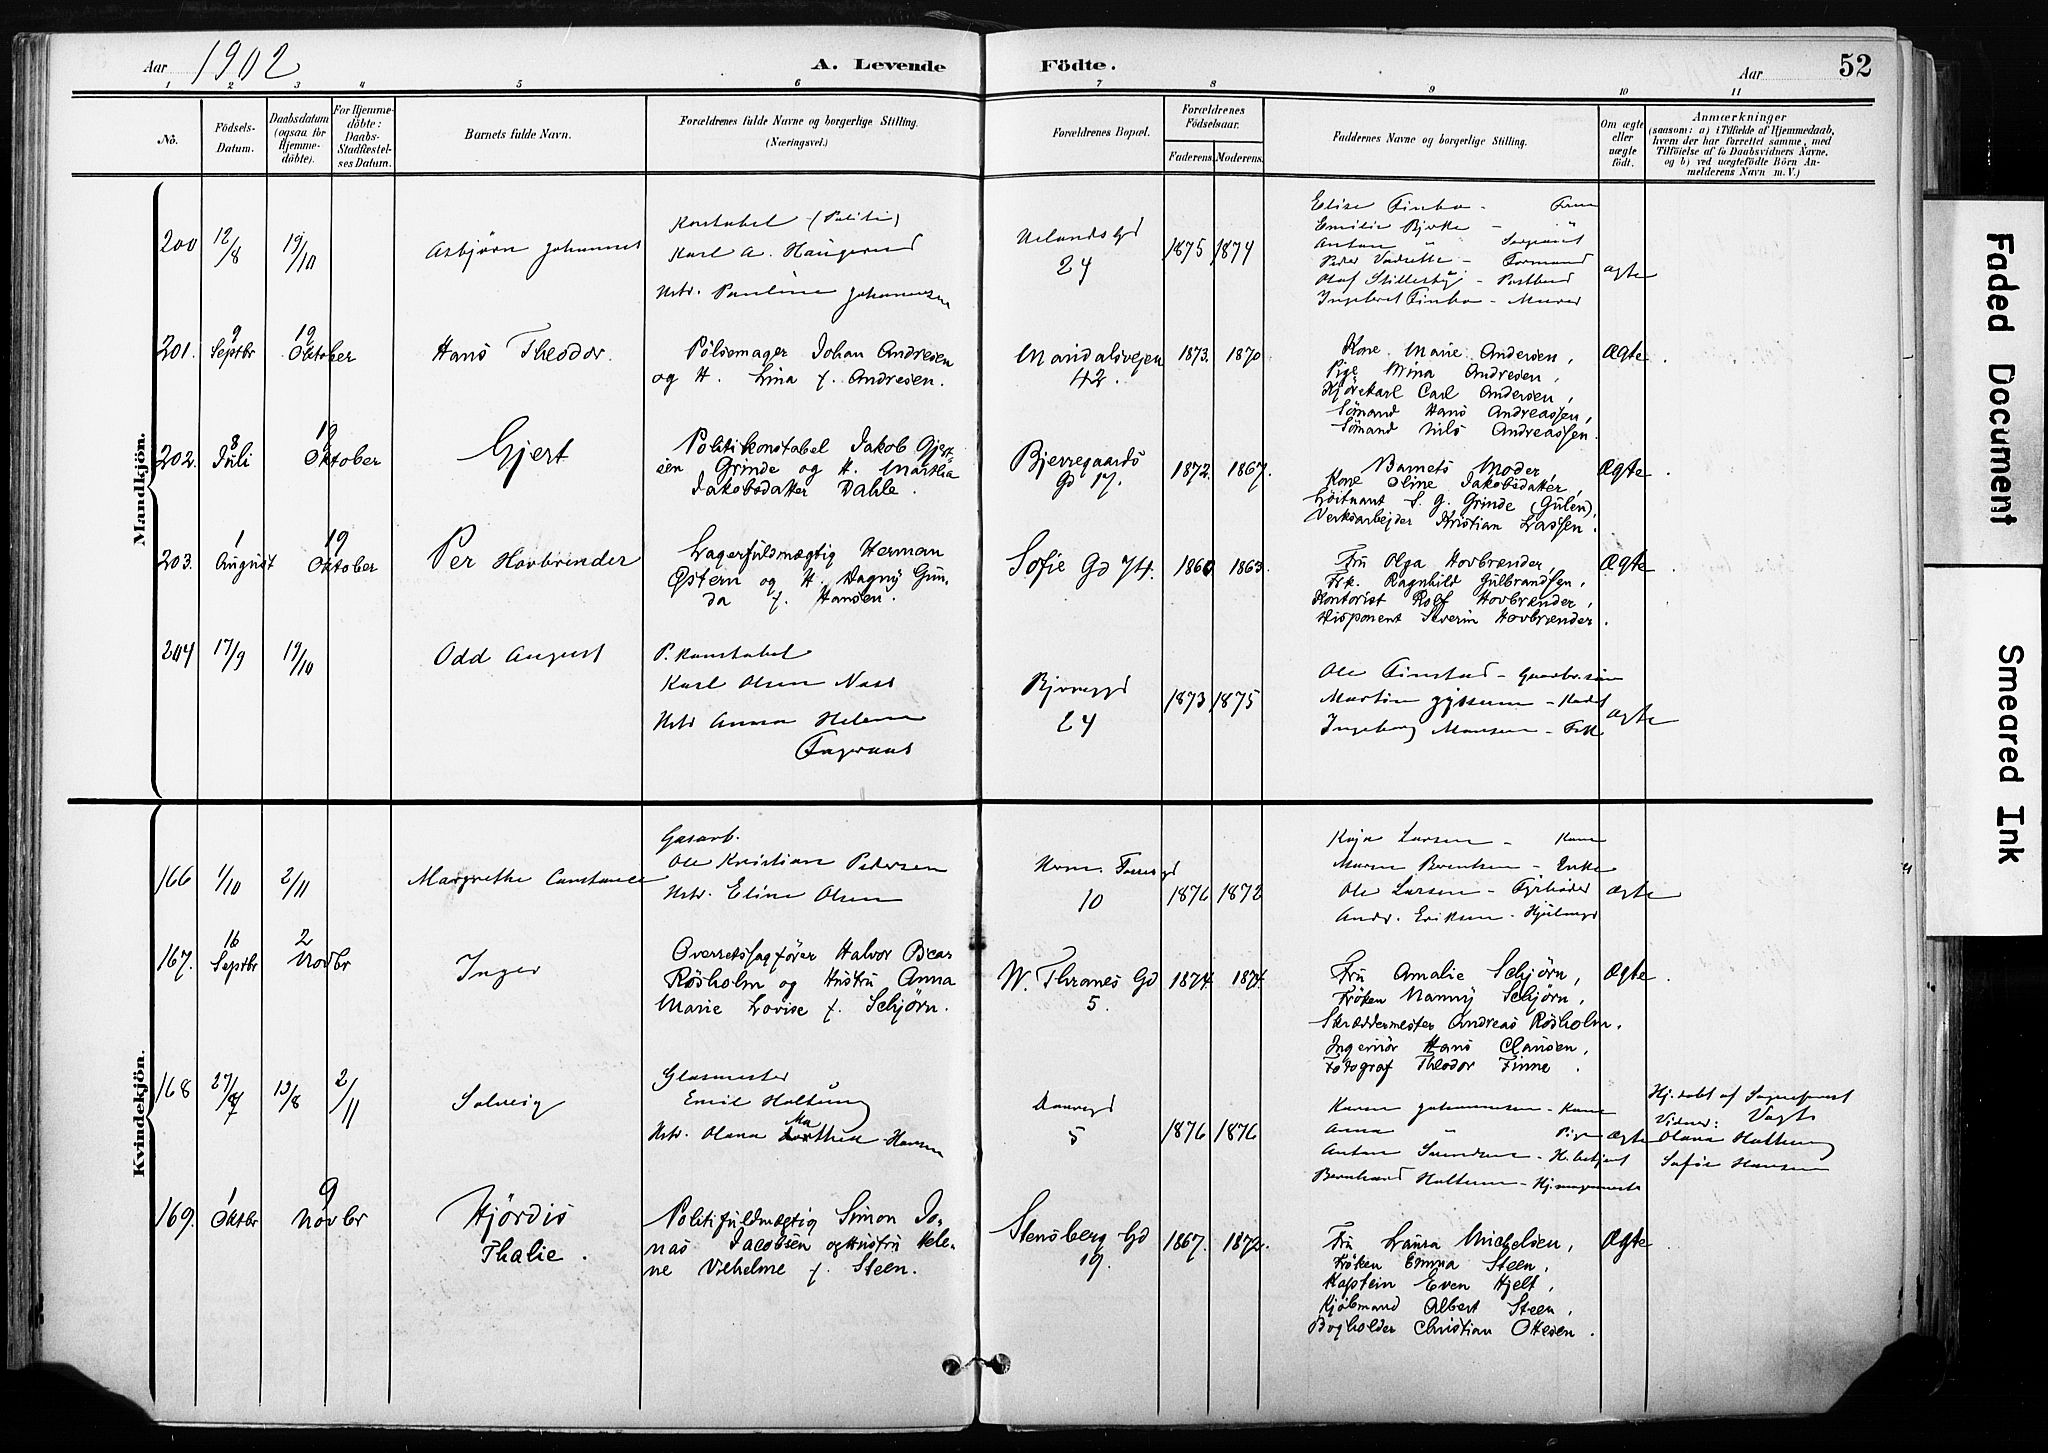 Aar 1902
A. Levende Födte.
Aar 52
1 2 3 4 5 6 7 8 9 10 11
No.
Födsels-Datum.
Daabsdatum (ogsaa for Hjemme-döbte).
For Hjemme-döbte: Daabs-Stadfæstel-ses Datum.
Barnets fulde Navn.
Forældrenes fulde Navne og borgerlige Stilling. (Næringsvei.)
Forældrenes Bopæl.
Forældrenes Födselsaar.
Faderens. Moderens.
Faddernes Navne og borgerlige Stilling.
Om ægte eller uægte födt.
Anmærkninger
(saasom: a) i Tilfælde af Hjemmedaab, hvem der har forrettet samme, med Tilföielse af to Daabsvidners Navne, og b) ved uægtefödte Börn An-melderens Navn m. V.)
Mandkjön.
200 12/8 19/10 Asbjörn Johannes
Konstabel (Politi)
Karl A. Haugerud
Hstr. Pauline Johannesen
Uelandsgd
24
1875 1874
Elise Finbo - Frue
Emilie Bjerke - "
Anton " Sergeant
Peder - Formand
Olaf - Postbud
Ingebret Finbo - Murer
ægte
201. 9 Septbr 19 Oktober Hans Theodor.
Pölsemager Johan Andresen
og H. Lina f. Andresen.
Maridalsvejen
42.
1873. 1870
Kone Marie Andersen,
Pige Mina Andresen,
Kjörekarl Carl Andersen,
Sömand Hans Andreassen,
Sömand Nils Andreassen.
Ægte.
202. 8 Juli 19 Oktober Gjert
Politikonstabel Jakob Gjert-
sen Grinde og H. Martha
Jakobsdatter Dahle.
Bjerregaards
Gd 17.
1872. 1867.
Barnets Moder,
Kone Oline Jakobsdatter,
Löitnant S. G. Grinde (Gulen),
Verksarbejder Kristian Lassen.
Ægte.
203. 1 August 19 Oktober Per Hovbrender
Lagerfuldmægtig Herman
Østern og H. Dagny Gun-
da f. Hansen.
Sofie Gd 74.
1860 1863.
Fru Olga Hovbrænder,
Frk. Ragnhild Gulbrandsen,
Kontorist Rolf Hovbrænder,
Disponent Severin Hovbrænder.
Ægte.
204 17/9 19/10 Odd August
P. konstabel
Karl Olsen Næss
Hstr Anna Helene
Bjerregd
24
1873 1875
Ole Finstad - Gaardbr.sön
Martin - Kadet
Ingeborg Monsen - Frk
ægte
Kvindekjön.
166 1/10 2/11 Margrethe Constance
Gasarb.
Ole Kristian Pedersen
Hstr. Eline Olsen
Herm. Fossgd
10
1876 1872
Kaja Larsen - Kone
Maren Berentsen - Enke
Ole Larsen - Fyrböder
Andr. Eriksen -
ægte
167. 16 Septbr 2 Novbr Inger
Overretssagförer Halvor Bear
Rösholm og Hustru Anna
Marie Lovise f. Schjörn.
W. Thranes Gd
5.
1874. 1874.
Fru Amalie Schjörn,
Fröken Nanny Schjörn,
Skræddermester Andreas Rösholm.
Ingeniör Hans Clausen,
Fotograf Theodor Finne.
Ægte.
168 27/7 13/8 2/11 Solveig
Glasmester
Emil Holtung
Hstr. Olana Mathea Hansen
Daasgd
5
1876 1876
Karen Johannesen - Kone
Anna " Pige
Anton - H. betjent
Bernhard Holtung - Hj.
ægte
Hj. döbt af Sogneprest
Vogt
Vidner:
Olava Holtung
Sofie Hansen
169. 1 Oktbr 9 Novbr Hjördis
Thalie.
Politifuldmægtig Simon Jo-
nas Jacobsen og Hustru Hele-
ne Vilhelme f. Steen.
Stensberg Gd
19.
1867. 1872.
Fru Laura Michelsen,
Fröken Emma Steen,
Kaptein Even Hjelt,
Kjöbmand Albert Steen,
Bogholder Christian Ottesen.
Ægte.
Faded Document
Smeared Ink